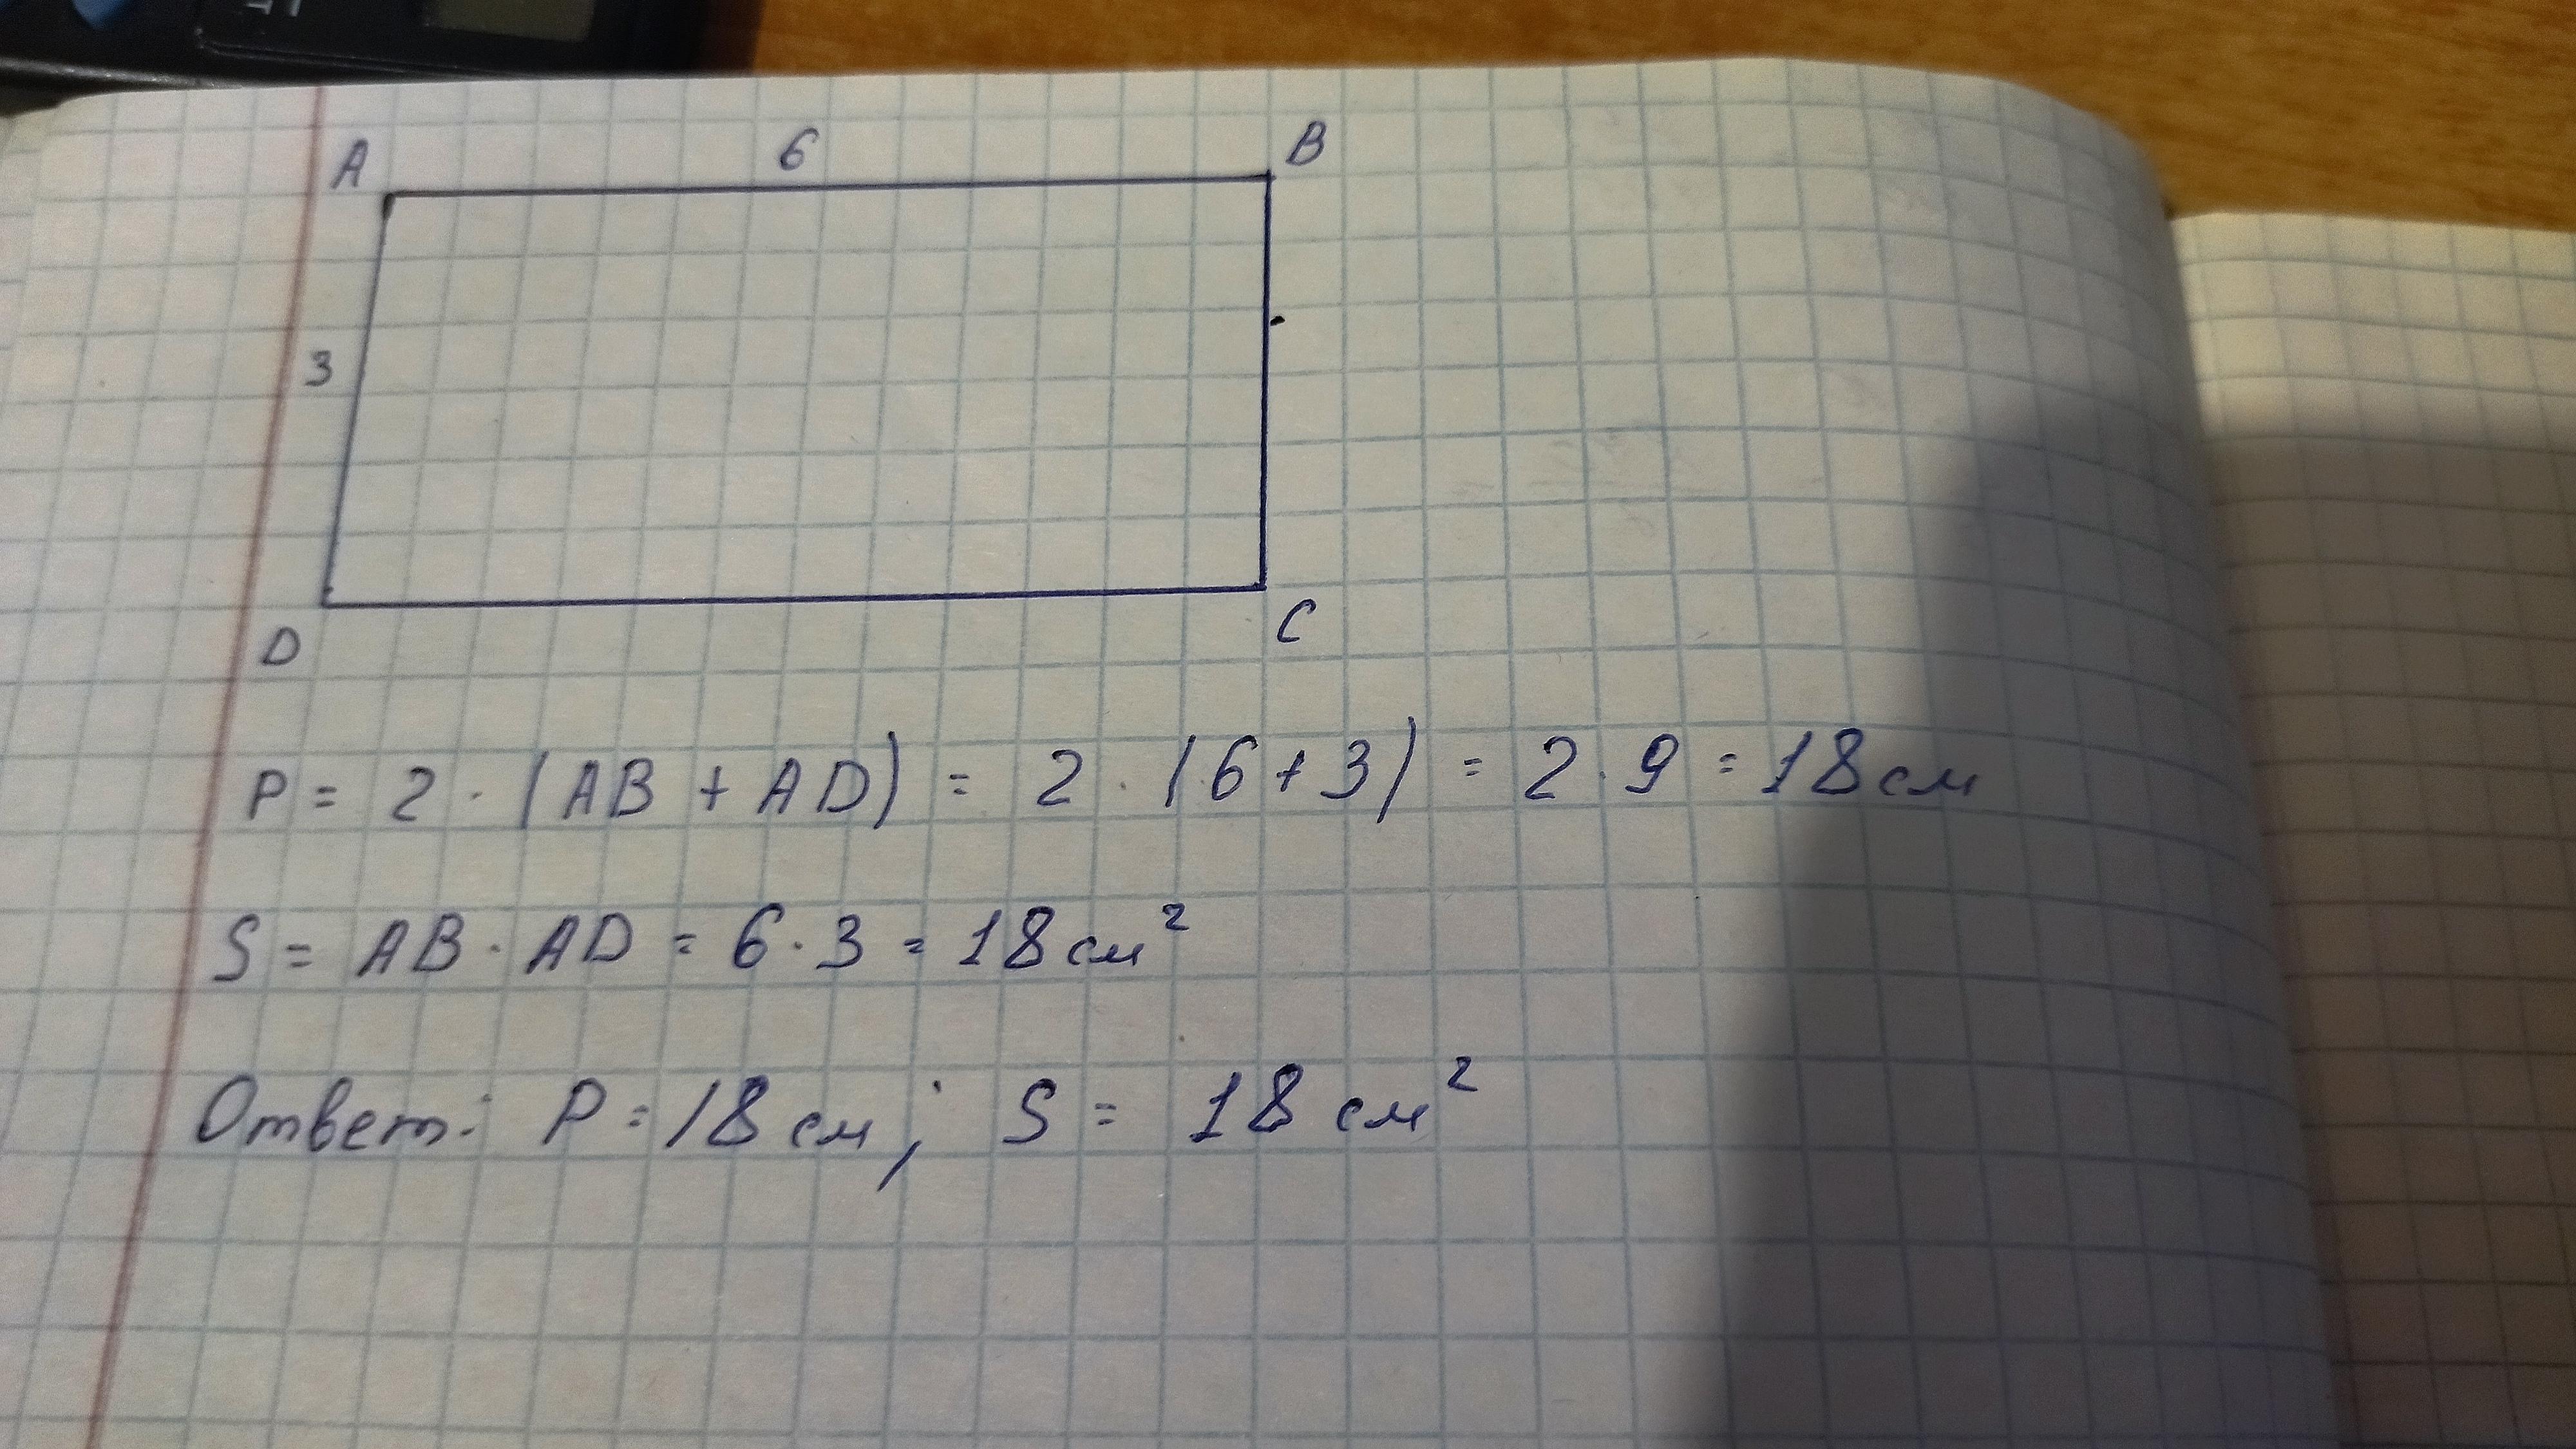 A 6 B
3
D C
P = 2 · (AB + AD) = 2 · (6 + 3) = 2 · 9 = 18 см
S = AB · AD = 6 · 3 = 18 см²
Ответ: P = 18 см; S = 18 см²